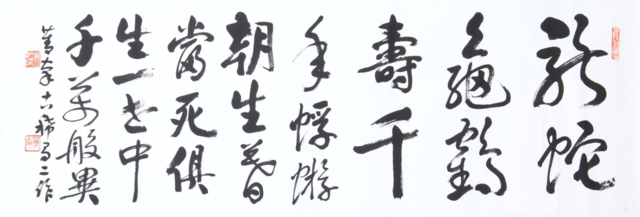 龍蛇
龜鶴
壽千
年蜉蝣
朝生暮
當死俱
生一世中
千萬般異
古稀